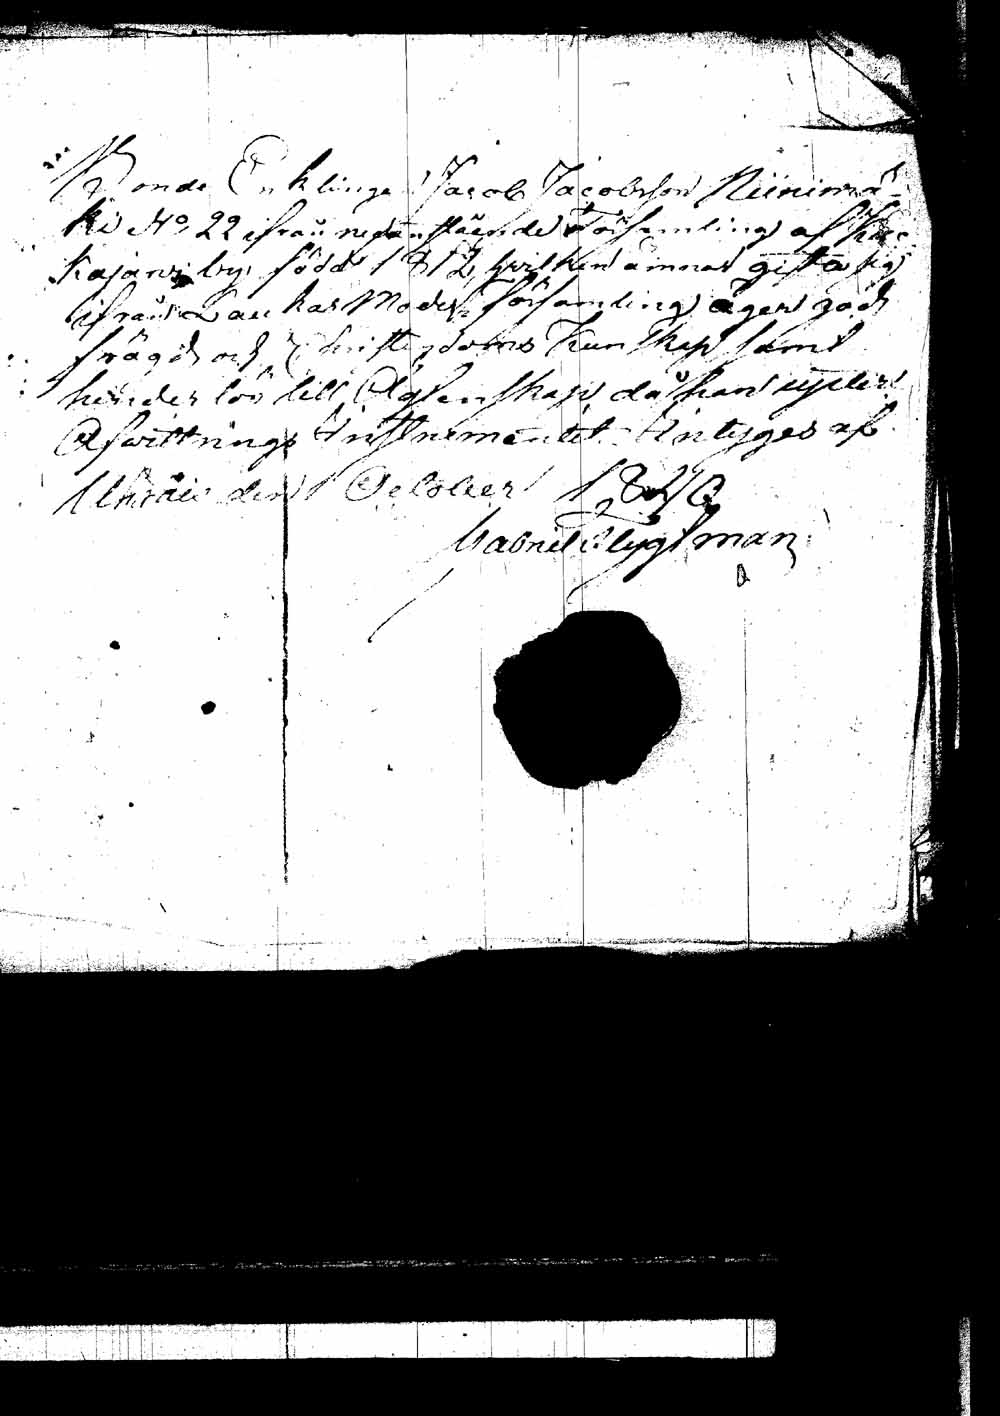 Bonde Enklinge Jacob Jacobsson Niinimä-
ki No 22 ifrån nedanstående Församling af Ku-
kajärvi by, född 1812, hvilken ämnar gifta sig
ifrån Laukas Moder Församling äger god
frägd och Christendoms Kunskap samt
hinderlös till Ägtenskap, då han
Afvittrings Instrumentet. Intyges af
den 1 October 1840
Gabriel Flygtman